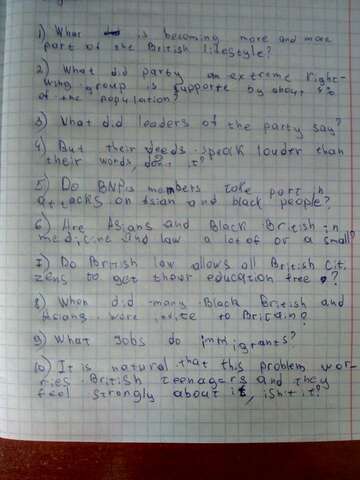 1) What is becoming more and more
part of the British lifestyle?
2) What did party an extreme right-
wing group is supporte by about 5%
of the population?
3) What did leaders of the party say?
4) But their deeds speak louder than
their words, don't it?
5) Do BNP's members take part in
attacks on Asian and black people?
6) Are Asians and Black British in
medicine and law a lot of or a small?
7) Do British law allows all British cit.
zens to get their education free?
8) When did many Black British and
Asians were invite to Britain?
9) What jobs do immigrants?
10) It is natural that this problem wor-
ries British teenagers and they
feel strongly about it, isn't it?